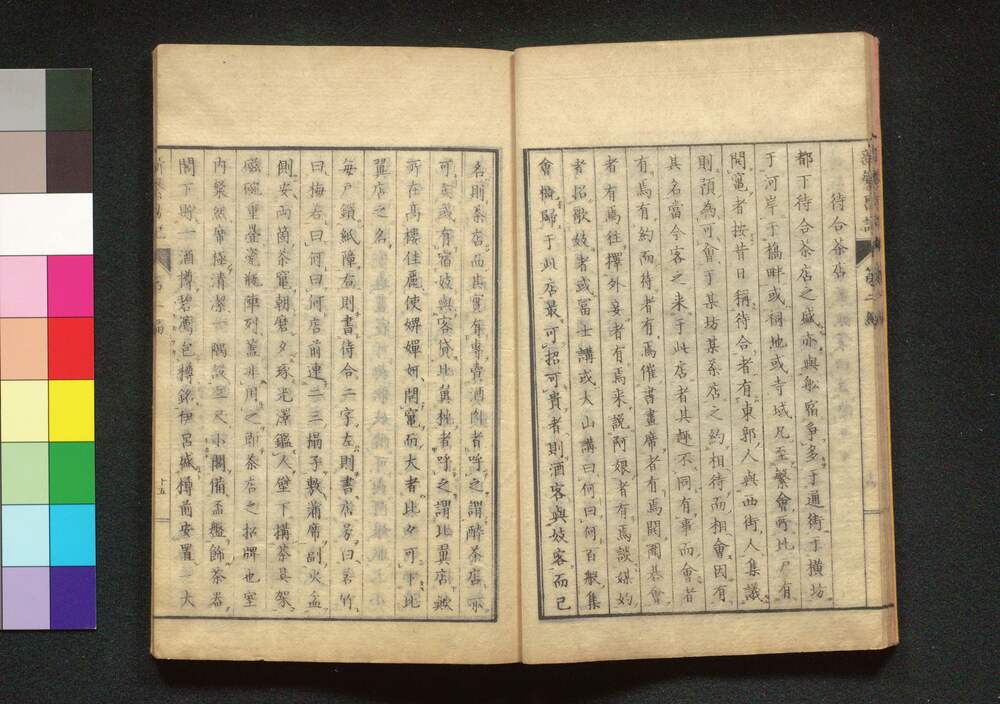 待合茶店
都下待合茶店之盛亦與船宿爭多于通街于橫坊
于河岸于橋畔或祠地或寺域凡至繁會所比尸有
開竈者按昔日稱待合者有東郭人與西街人集議
則預為可會于某坊某茶店之約相待而相會因有
其名當今客之來于此店者其趣不同有事而會者
有焉有約而待者有焉催書畫席者有焉開圍碁會
者有焉往擇外妾者有焉来説阿娘者有焉談媒妁
者招歌妓者或冨士講或大山講曰何曰何百般集
會概歸于此店最可招可貴者則酒客與妓客而已
名則茶店而其實有專賣酒肉者呼之謂醉茶店亦
可矣或有宿妓與客貸比翼牀者呼之謂比翼店歟
所在高樓佳麗使婢嬋妍開竈而大者比々可
翼店之名
每戶鎖紙障右則書待合二字左則書店号曰若竹
曰梅若曰何曰何店前連二三榻子敷蒲席副火盆
側安兩箇茶竈朝磨夕琢光澤鑑人壁下搆茶具架
磁碗重疊瓷瓶陣列蓋非用之即茶店之招牌也室
內粲然席極清潔一隅設三尺小閣備盃盤飾茶器
閣下貯一酒樽碧薦包樽銘伊呂城樽前安置一大
十五